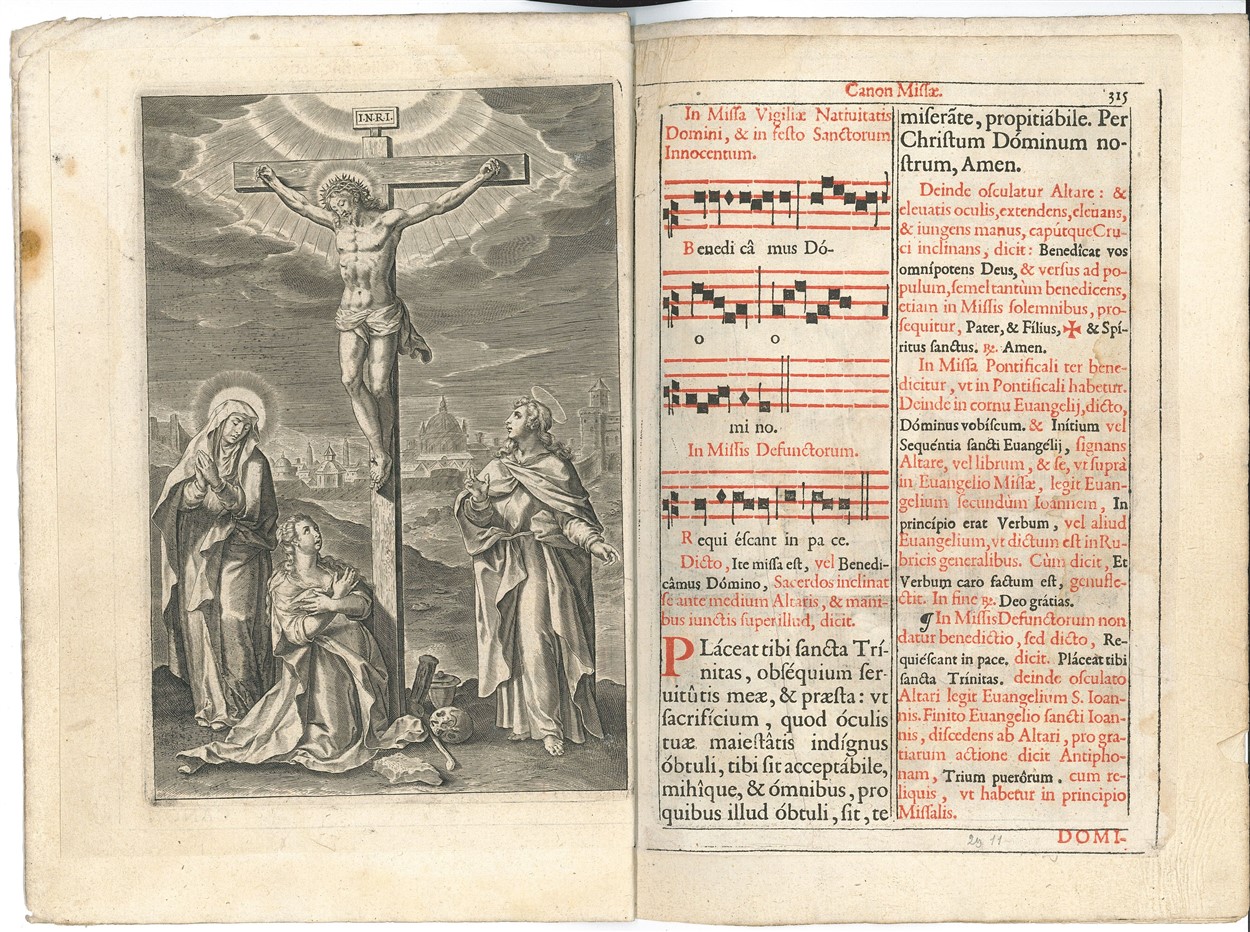 I.N.R.I.
Canon Missæ.
315
In Missa Vigiliæ Natiuitatis
Domini, & in festo Sanctorum
Innocentum.
Benedi câ mus Dó-
o o
mi no.
In Missis Defunctorum.
Requi éscant in pa ce.
Dicto, Ite missa est, vel Benedi-
câmus Dómino, Sacerdos inclinat
se ante medium Altaris, & mani-
bus iunctis super illud, dicit.
PLáceat tibi sancta Trí-
nitas, obséquium ser-
uitûtis meæ, & præsta: vt
sacrifícium, quod óculis
tuæ maiestâtis indígnus
óbtuli, tibi sit acceptábile,
mihîque, & ómnibus, pro
quibus illud óbtuli, sit, te
miserãte, propitiábile. Per
Christum Dóminum no-
strum, Amen.
Deinde osculatur Altare: &
eleuatis oculis, extendens, eleuans,
& iungens manus, capútque Cru-
ci inclinans, dicit: Benedîcat vos
omnípotens Deus, & versus ad po-
pulum, semel tantùm benedicens,
etiam in Missis solemnibus, pro-
sequitur, Pater, & Fílius, ✠ & Spí-
ritus sanctus. ℟. Amen.
In Missa Pontificali ter bene-
dicitur, vt in Pontificali habetur.
Deinde in cornu Euangelij, dicto,
Dóminus vobíscum. & Inítium vel
Sequéntia sancti Euangélij, signans
Altare, vel librum, & se, vt suprà
in Euangelio Missæ, legit Euan-
gelium secundùm Ioannem, In
princípio erat Verbum, vel aliud
Euangelium, vt dictum est in Ru-
bricis generalibus. Cùm dicit, Et
Verbum caro factum est, genufle-
ctit. In fine ℟. Deo grátias.
¶ In Missis Defunctorum non
datur benedictio, sed dicto, Re-
quiéscant in pace. dicit. Pláceat tibi
sancta Trínitas. deinde osculato
Altari legit Euangelium S. Ioan-
nis. Finito Euangelio sancti Ioan-
nis, discedens ab Altari, pro gra-
tiarum actione dicit Antipho-
nam, Trium puerôrum. cum re-
liquis, vt habetur in principio
Missalis.
DOMI-